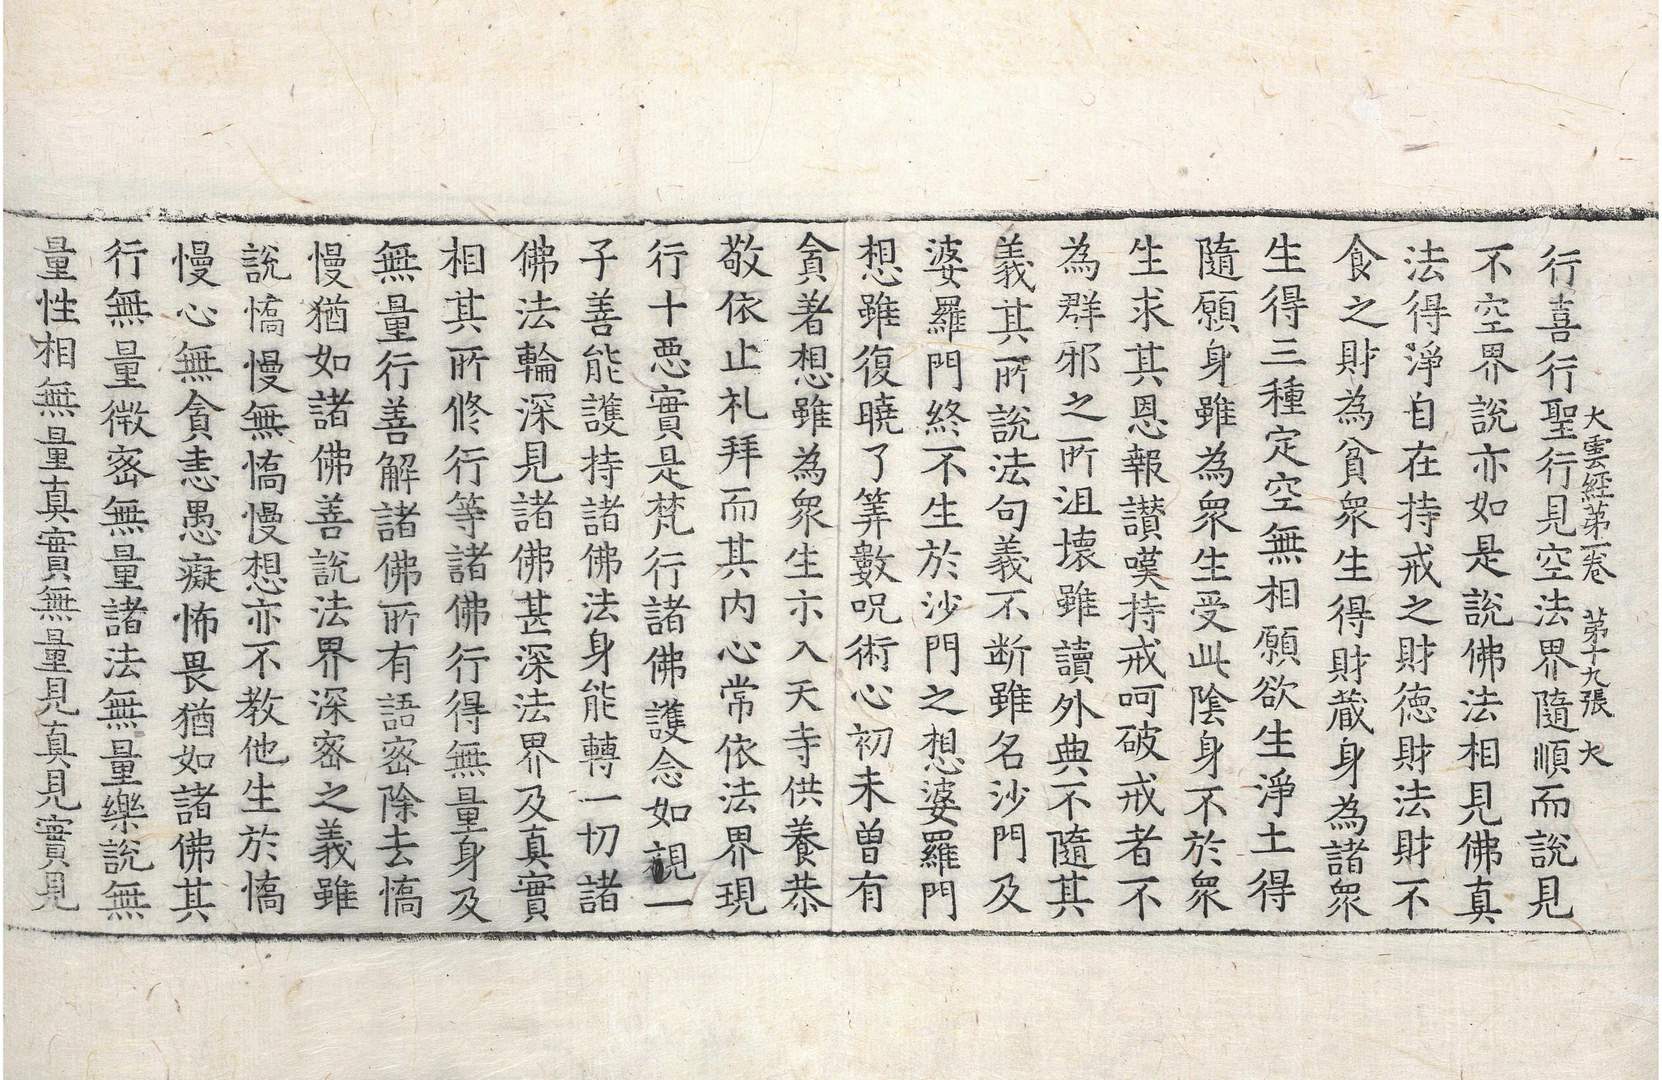 行喜行聖行見空法界隨順而說見
大雲經第一卷 第十九張 大
不空界說亦如是說佛法相見佛真
法得淨自在持戒之財德財法財不
食之財為貧衆生得財蔵身為諸衆
生得三種定空無相願欲生淨土得
隨願身雖為衆生受此陰身不於衆
生求其恩報讃嘆持戒呵破戒者不
為群邪之所沮壞雖讀外典不隨其
義其所說法句義不断雖名沙門及
婆羅門終不生於沙門之想婆羅門
想雖復曉了筭數呪術心初未曽有
貪著想雖為衆生亦入天寺供養恭
敬依止礼拜而其内心常依法界現
行十惡實是梵行諸佛護念如視一
子善能護持諸佛法身能轉一切諸
佛法輪深見諸佛甚深法界及真實
相其所修行等諸佛行得無量身及
無量行善解諸佛所有語密除去憍
慢猶如諸佛善說法界深密之義雖
說憍慢無憍慢想亦不教他生於憍
慢心無貪恚愚癡怖畏猶如諸佛其
行無量微密無量諸法無量樂說無
量性相無量真實無量見真見實見